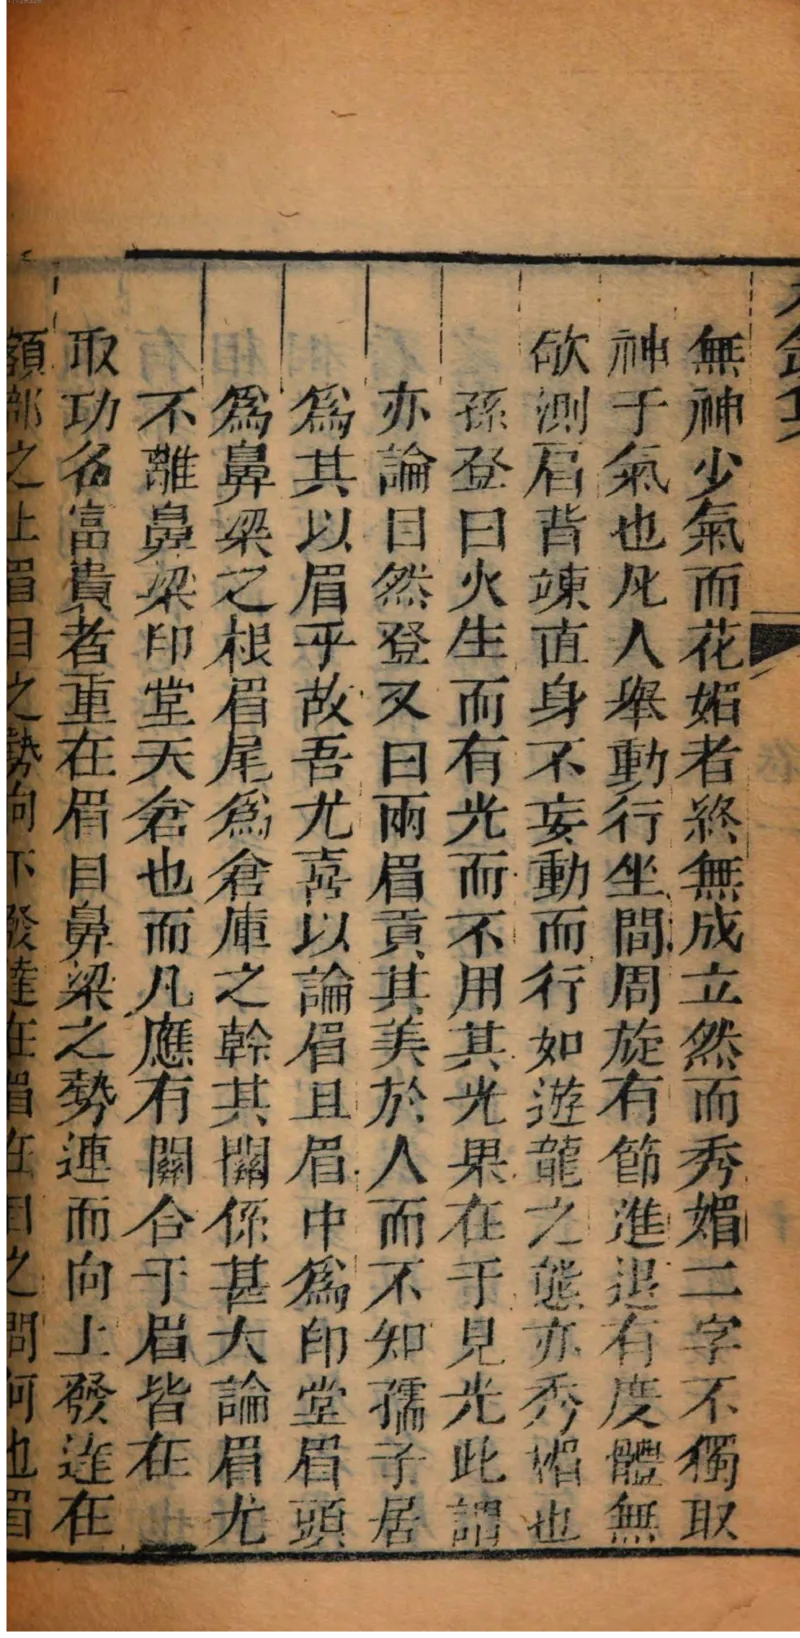 無神少氣而花媚者終無成立然而秀媚二字不獨取
神于氣也凡人舉動行坐間周旋有節進退有度體無
欹測眉背竦直身不妄動而行如遊龍之態亦秀媚也
孫登曰火生而有光而不用其光果在于見光此謂
亦論目然登又曰兩眉貢其美於人而不知孺子居
為其以眉乎故吾尤喜以論眉且眉中為印堂眉頭
為鼻梁之根眉尾為倉庫之幹其關係甚大論眉尤
不離鼻梁印堂天倉也而凡應有關合于眉皆在
取功名富貴者重在眉目鼻梁之勢連而向上發達在
額部之上眉目之勢向下發達在眉在目之間何也眉